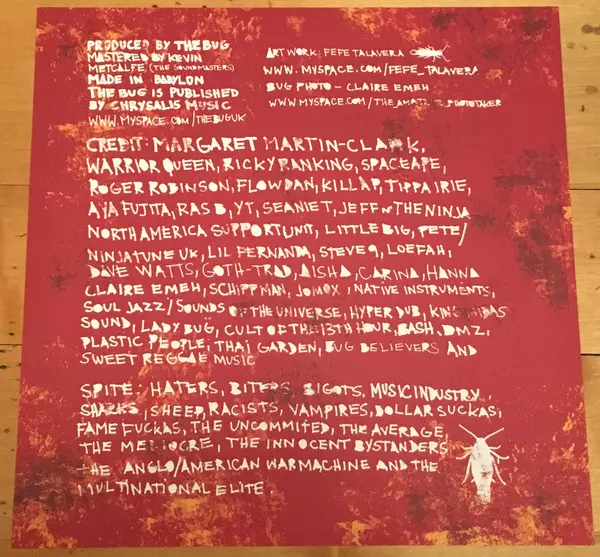 PRODUCED BY THE BUG
MASTERED BY KEVIN
METCALFE (THE SOUNDMASTERS)
MADE IN BABYLON
THE BUG IS PUBLISHED
BY CHRYSALIS MUSIC
WWW.MYSPACE.COM/THEBUGUK
ARTWORK: FEFE TALAVERA
WWW.MYSPACE.COM/FEFE_TALAVERA
BUG PHOTO - CLAIRE EMEH
WWW.MYSPACE.COM/THE_AMATEUR_PHOTOTAKER
CREDIT: MARGARET MARTIN-CLARK,
WARRIOR QUEEN, RICKY RANKING, SPACEAPE,
ROGER ROBINSON, FLOWDAN, KILLA P, TIPPA IRIE,
AYA FUJITA, RAS B, YT, SEANIE T, JEFF N THE NINJA
NORTH AMERICA SUPPORT UNIT, LITTLE BIG, PETE/
NINJATUNE UK, LIL FERNANDA, STEVE 9, LOEFAH,
DAVE WATTS, GOTH-TRAD, AISHA, CARINA, HANNA
CLAIRE EMEH, SCHIPPMAN, JOMOX, NATIVE INSTRUMENTS,
SOUL JAZZ/SOUNDS OF THE UNIVERSE, HYPER DUB, KING MIDAS
SOUND, LADY BUG, CULT OF THE 13TH HOUR, BASH, DMZ,
PLASTIC PEOPLE, THAI GARDEN, BUG BELIEVERS AND
SWEET REGGAE MUSIC
SPITE: HATERS, BITERS, BIGOTS, MUSIC INDUSTRY
SHARKS, SHEEP, RACISTS, VAMPIRES, DOLLAR SUCKAS,
FAME FUCKAS, THE UNCOMMITED, THE AVERAGE,
THE MEDIOCRE, THE INNOCENT BYSTANDERS
THE ANGLO/AMERICAN WARMACHINE AND THE
MULTINATIONAL ELITE.